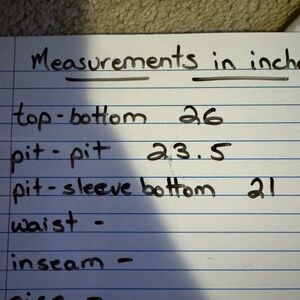 Measurements in inche
top-bottom 26
pit-pit 23.5
pit-sleeve bottom 21
waist -
inseam -